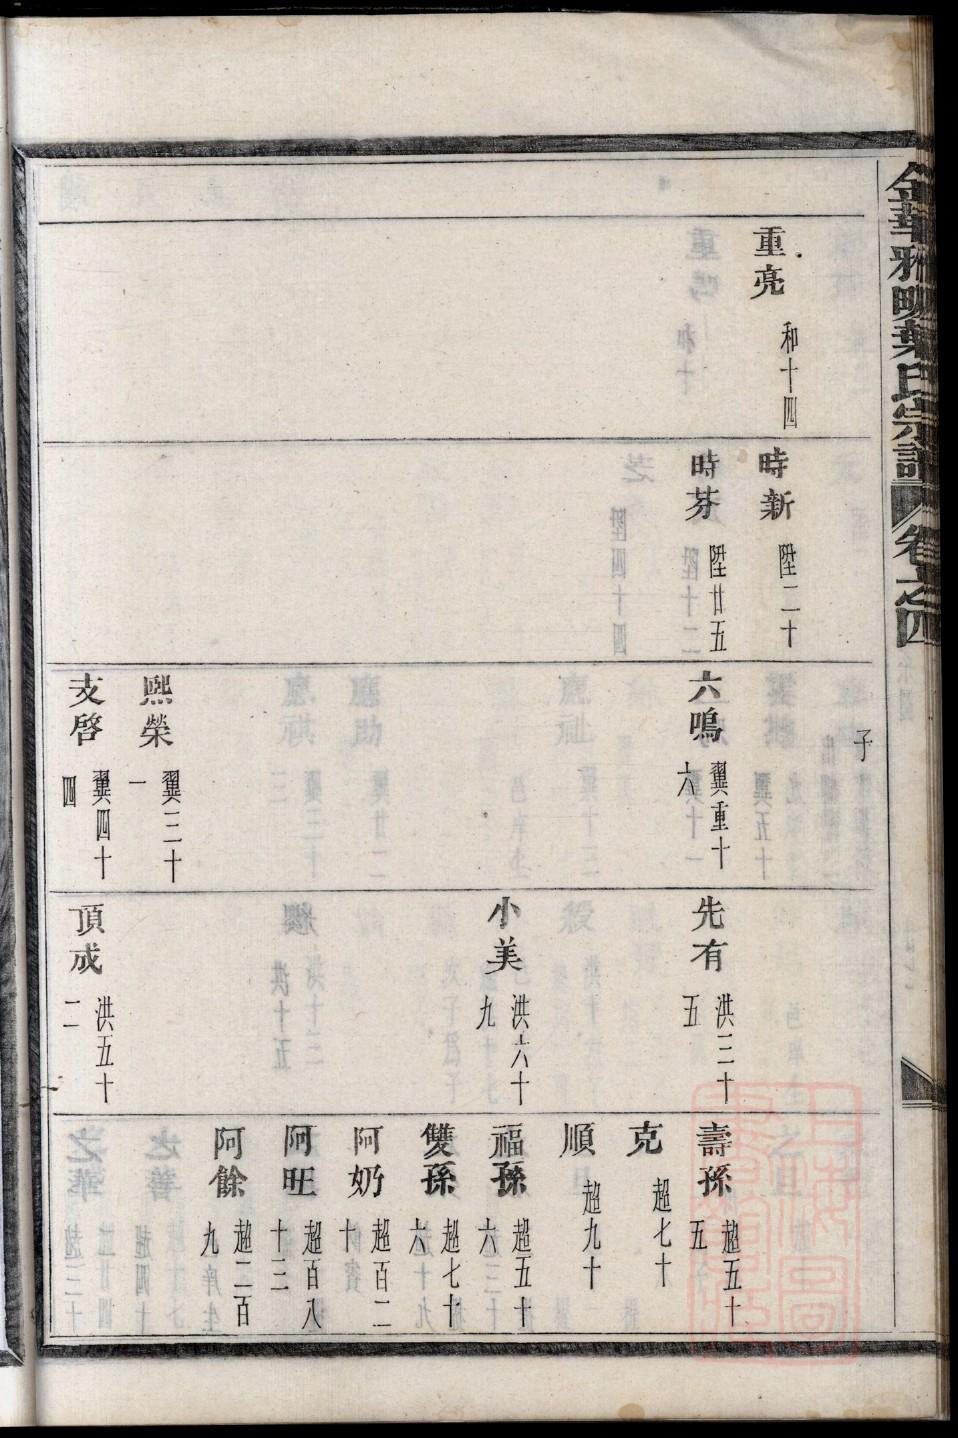 金華雅畈葉氏宗譜 卷之四
重亮 和十四
時新 陞二十
時芬 陞廿五
子
六鳴 翼重十六
熙榮 翼三十一
支啓 翼四十四
先有 洪三十五
小美 洪六十九
頂成 洪五十二
壽孫 超五十五
克 超七十
順 超九十
福孫 超五十六
雙孫 超七十六
阿奶 超百二十
阿旺 超百八十三
阿餘 超二百九